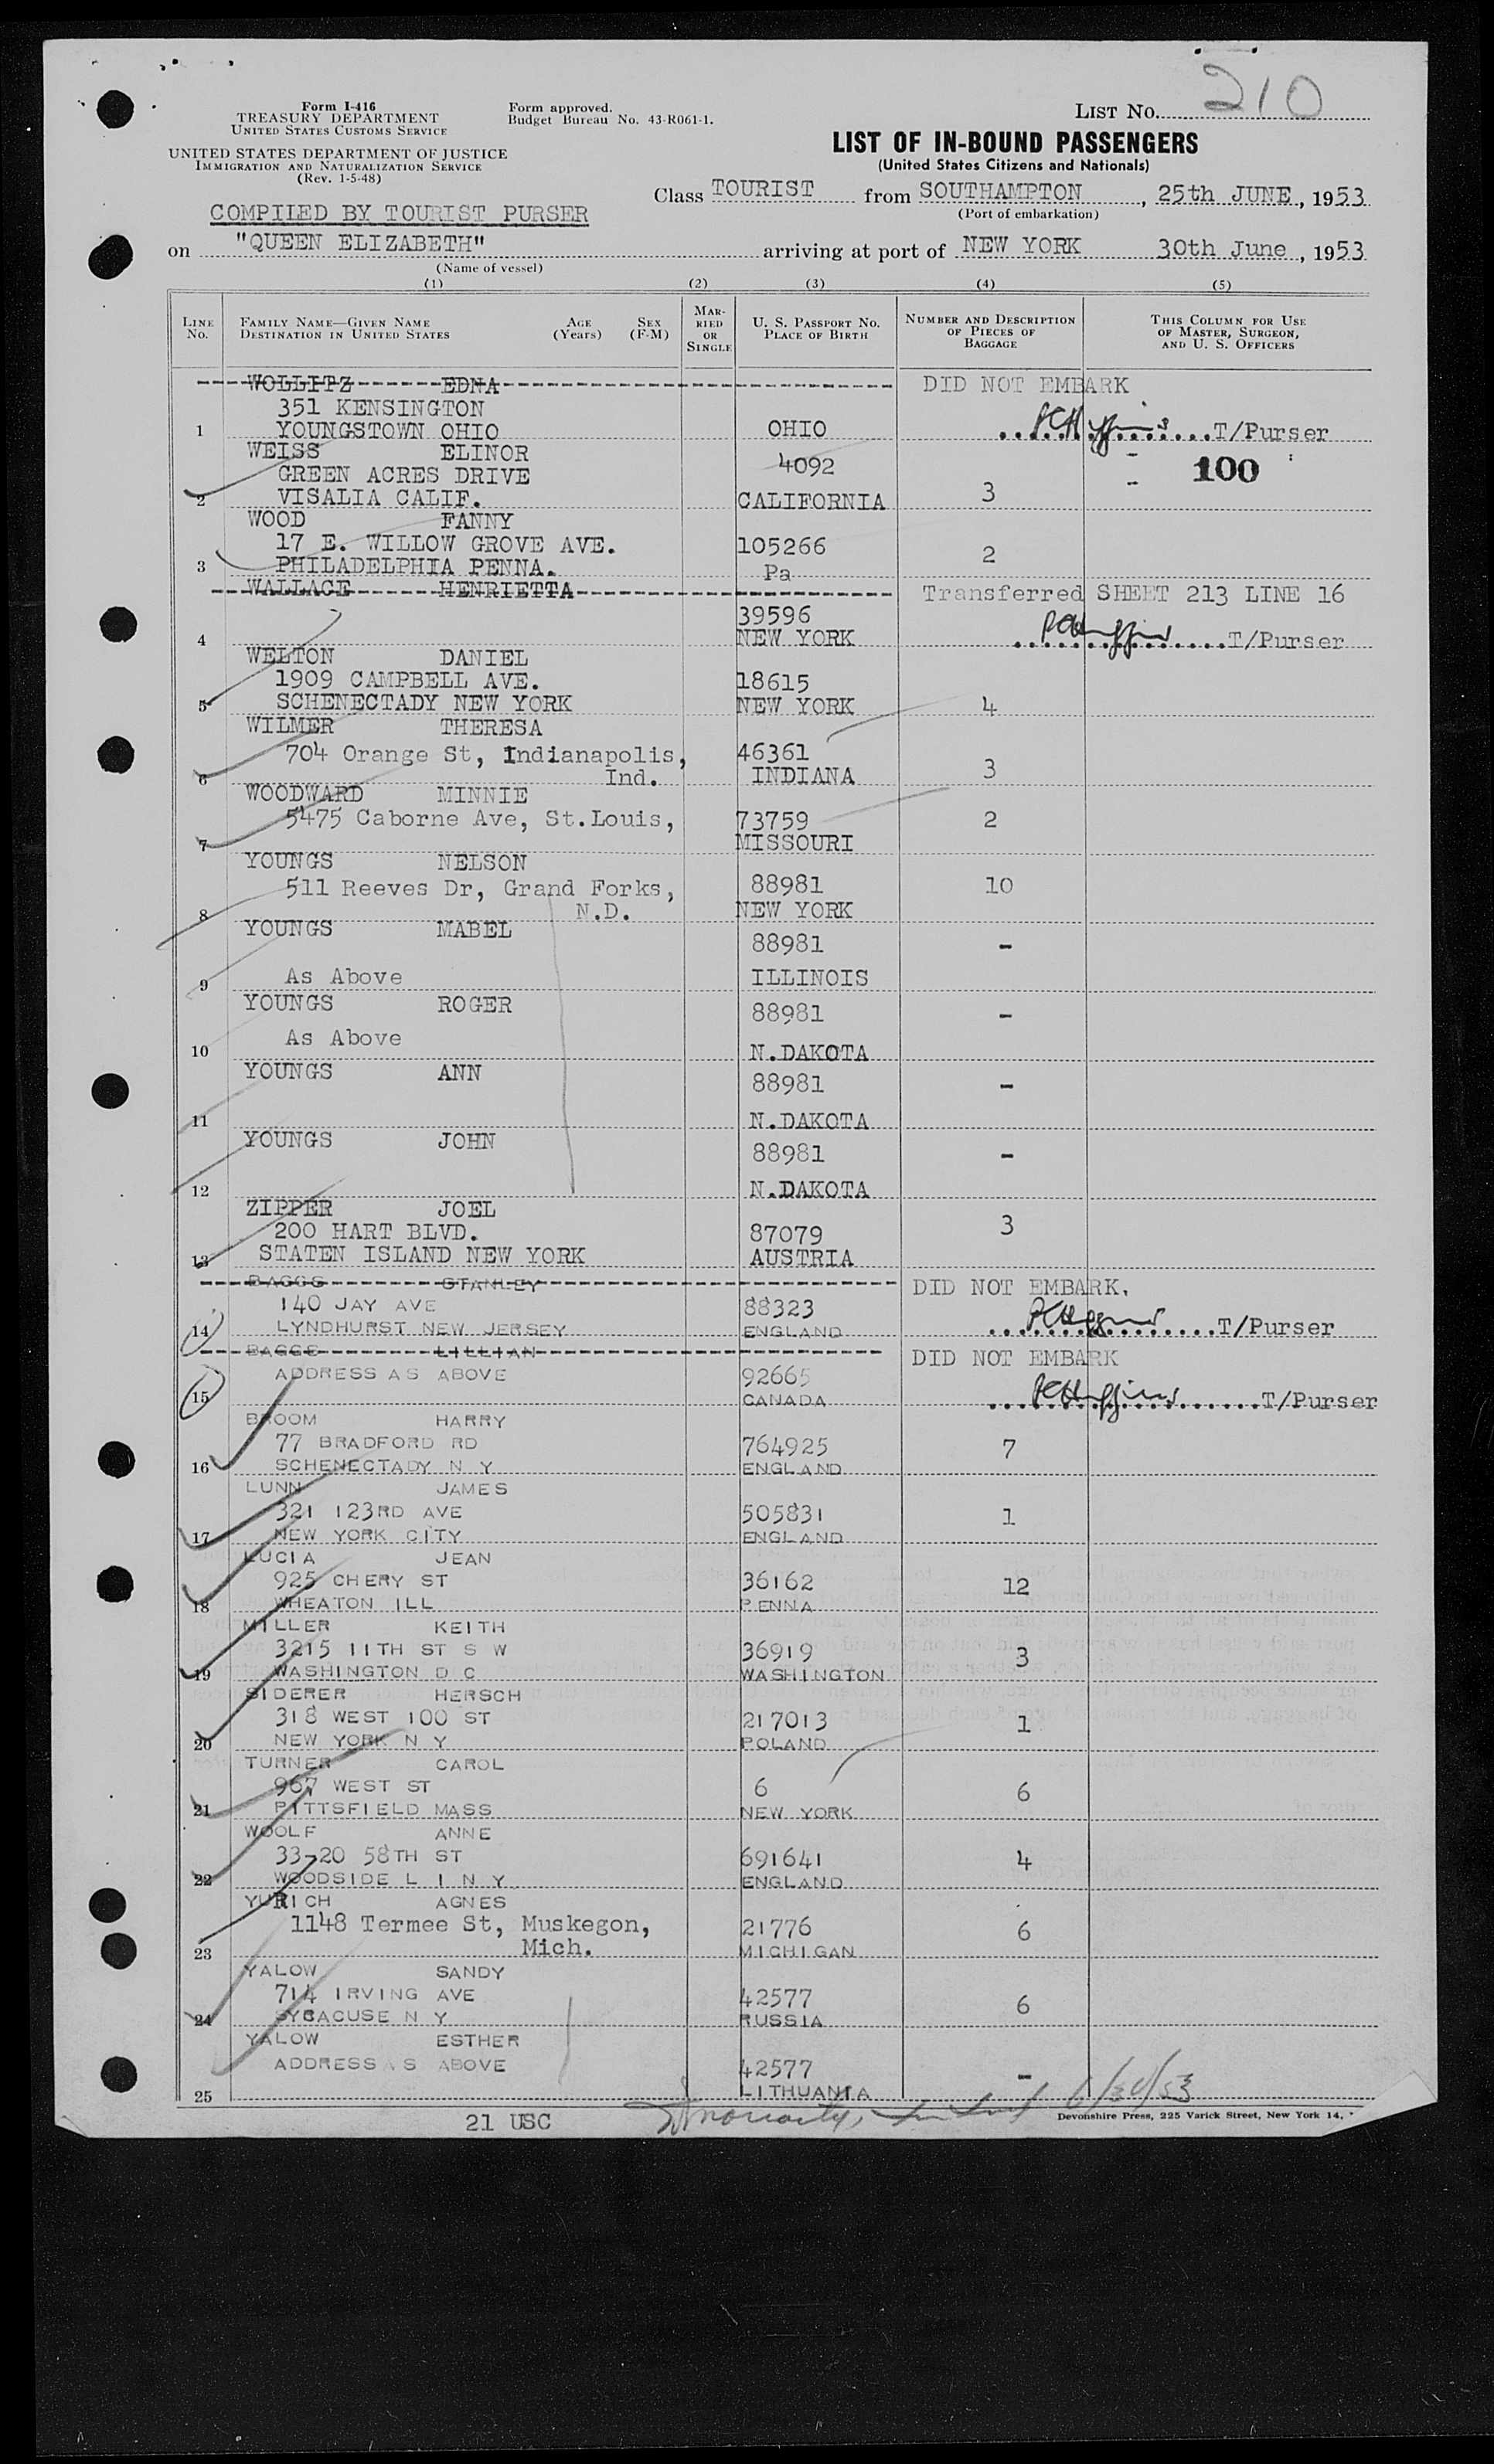 210
Form I-416
TREASURY DEPARTMENT
UNITED STATES CUSTOMS SERVICE
Form approved.
Budget Bureau No. 43-R061-1.
LIST NO.
UNITED STATES DEPARTMENT OF JUSTICE
IMMIGRATION AND NATURALIZATION SERVICE
(Rev. 1-5-48)
LIST OF IN-BOUND PASSENGERS
(United States Citizens and Nationals)
Class TOURIST from SOUTHAMPTON, 25th JUNE, 1953
(Port of embarkation)
COMPILED BY TOURIST PURSER
on "QUEEN ELIZABETH" arriving at port of NEW YORK 30th June, 1953
(Name of vessel)
(1) (2) (3) (4) (5)
LINE No.
FAMILY NAME—GIVEN NAME
DESTINATION IN UNITED STATES
AGE (Years)
SEX (F-M)
MARRIED OR SINGLE
U. S. PASSPORT NO.
PLACE OF BIRTH
NUMBER AND DESCRIPTION OF PIECES OF BAGGAGE
THIS COLUMN FOR USE OF MASTER, SURGEON, AND U. S. OFFICERS
WOLLITZ EDNA DID NOT EMBARK
351 KENSINGTON
1 YOUNGSTOWN OHIO OHIO T/Purser
WEISS ELINOR 4092 100
GREEN ACRES DRIVE
2 VISALIA CALIF. CALIFORNIA 3
WOOD FANNY
17 E. WILLOW GROVE AVE. 105266 2
3 PHILADELPHIA PENNA. Pa
WALLACE HENRIETTA Transferred SHEET 213 LINE 16
39596
4 NEW YORK T/Purser
WELTON DANIEL
1909 CAMPBELL AVE. 18615
5 SCHENECTADY NEW YORK NEW YORK 4
WILMER THERESA
704 Orange St, Indianapolis, 46361
6 Ind. INDIANA 3
WOODWARD MINNIE
5475 Caborne Ave, St.Louis, 73759 2
7 MISSOURI
YOUNGS NELSON
511 Reeves Dr, Grand Forks, 88981 10
8 N.D. NEW YORK
YOUNGS MABEL 88981 -
9 As Above ILLINOIS
YOUNGS ROGER 88981 -
As Above
10 N.DAKOTA
YOUNGS ANN 88981 -
11 N.DAKOTA
YOUNGS JOHN 88981 -
12 N.DAKOTA
ZIPPER JOEL
200 HART BLVD. 87079 3
13 STATEN ISLAND NEW YORK AUSTRIA
BAGGS STANLEY DID NOT EMBARK.
140 JAY AVE 88323
14 LYNDHURST NEW JERSEY ENGLAND T/Purser
BAGGS LILLIAN DID NOT EMBARK
ADDRESS AS ABOVE 92665
15 CANADA T/Purser
BROOM HARRY
77 BRADFORD RD 764925 7
16 SCHENECTADY N Y ENGLAND
LUNN JAMES
321 123RD AVE 505831 1
17 NEW YORK CITY ENGLAND
LUCIA JEAN
925 CHERY ST 36162 12
18 WHEATON ILL PENNA
MILLER KEITH
3215 11TH ST S W 36919 3
19 WASHINGTON D C WASHINGTON
SIDERER HERSCH
318 WEST 100 ST 217013 1
20 NEW YORK N Y POLAND
TURNER CAROL
967 WEST ST 6 6
21 PITTSFIELD MASS NEW YORK
WOOLF ANNE
33-20 58TH ST 691641 4
22 WOODSIDE L I N Y ENGLAND
YURICH AGNES
1148 Termee St, Muskegon, 21776 6
23 Mich. MICHIGAN
YALOW SANDY
714 IRVING AVE 42577 6
24 SYRACUSE N Y RUSSIA
YALOW ESTHER
ADDRESS AS ABOVE 42577 -
25 LITHUANIA
6/30/53
21 USC
Devonshire Press, 225 Varick Street, New York 14,